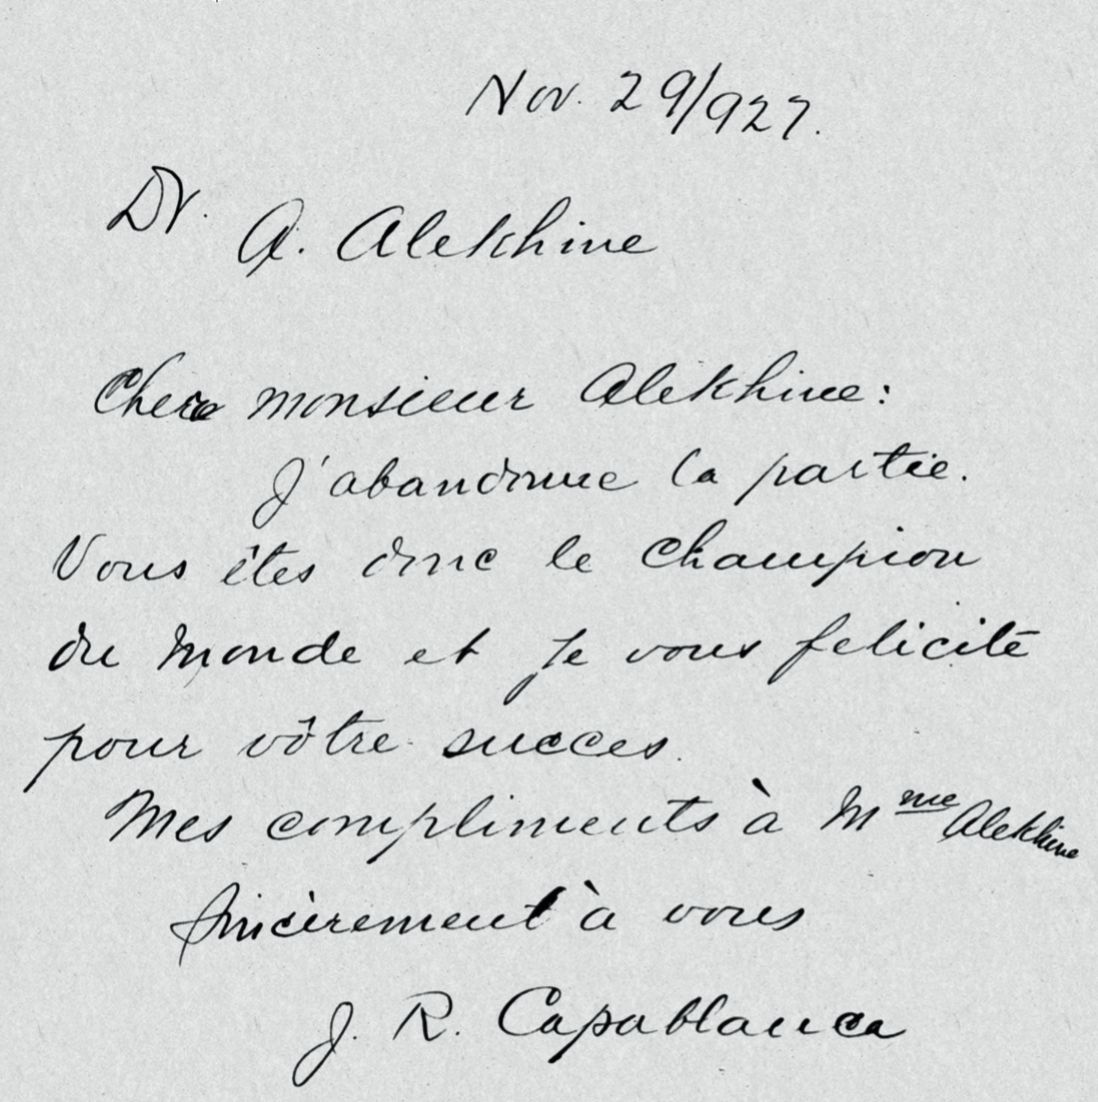 Nov. 29/927.
Dr.
A. Alekhine
Chere monsieur Alekhine:
J'abandonne la partie.
Vous êtes donc le champion
du monde et je vous felicite
pour vôtre succes.
Mes compliments à Mme Alekhine
Sincèrement à vous
J. R. Capablanca